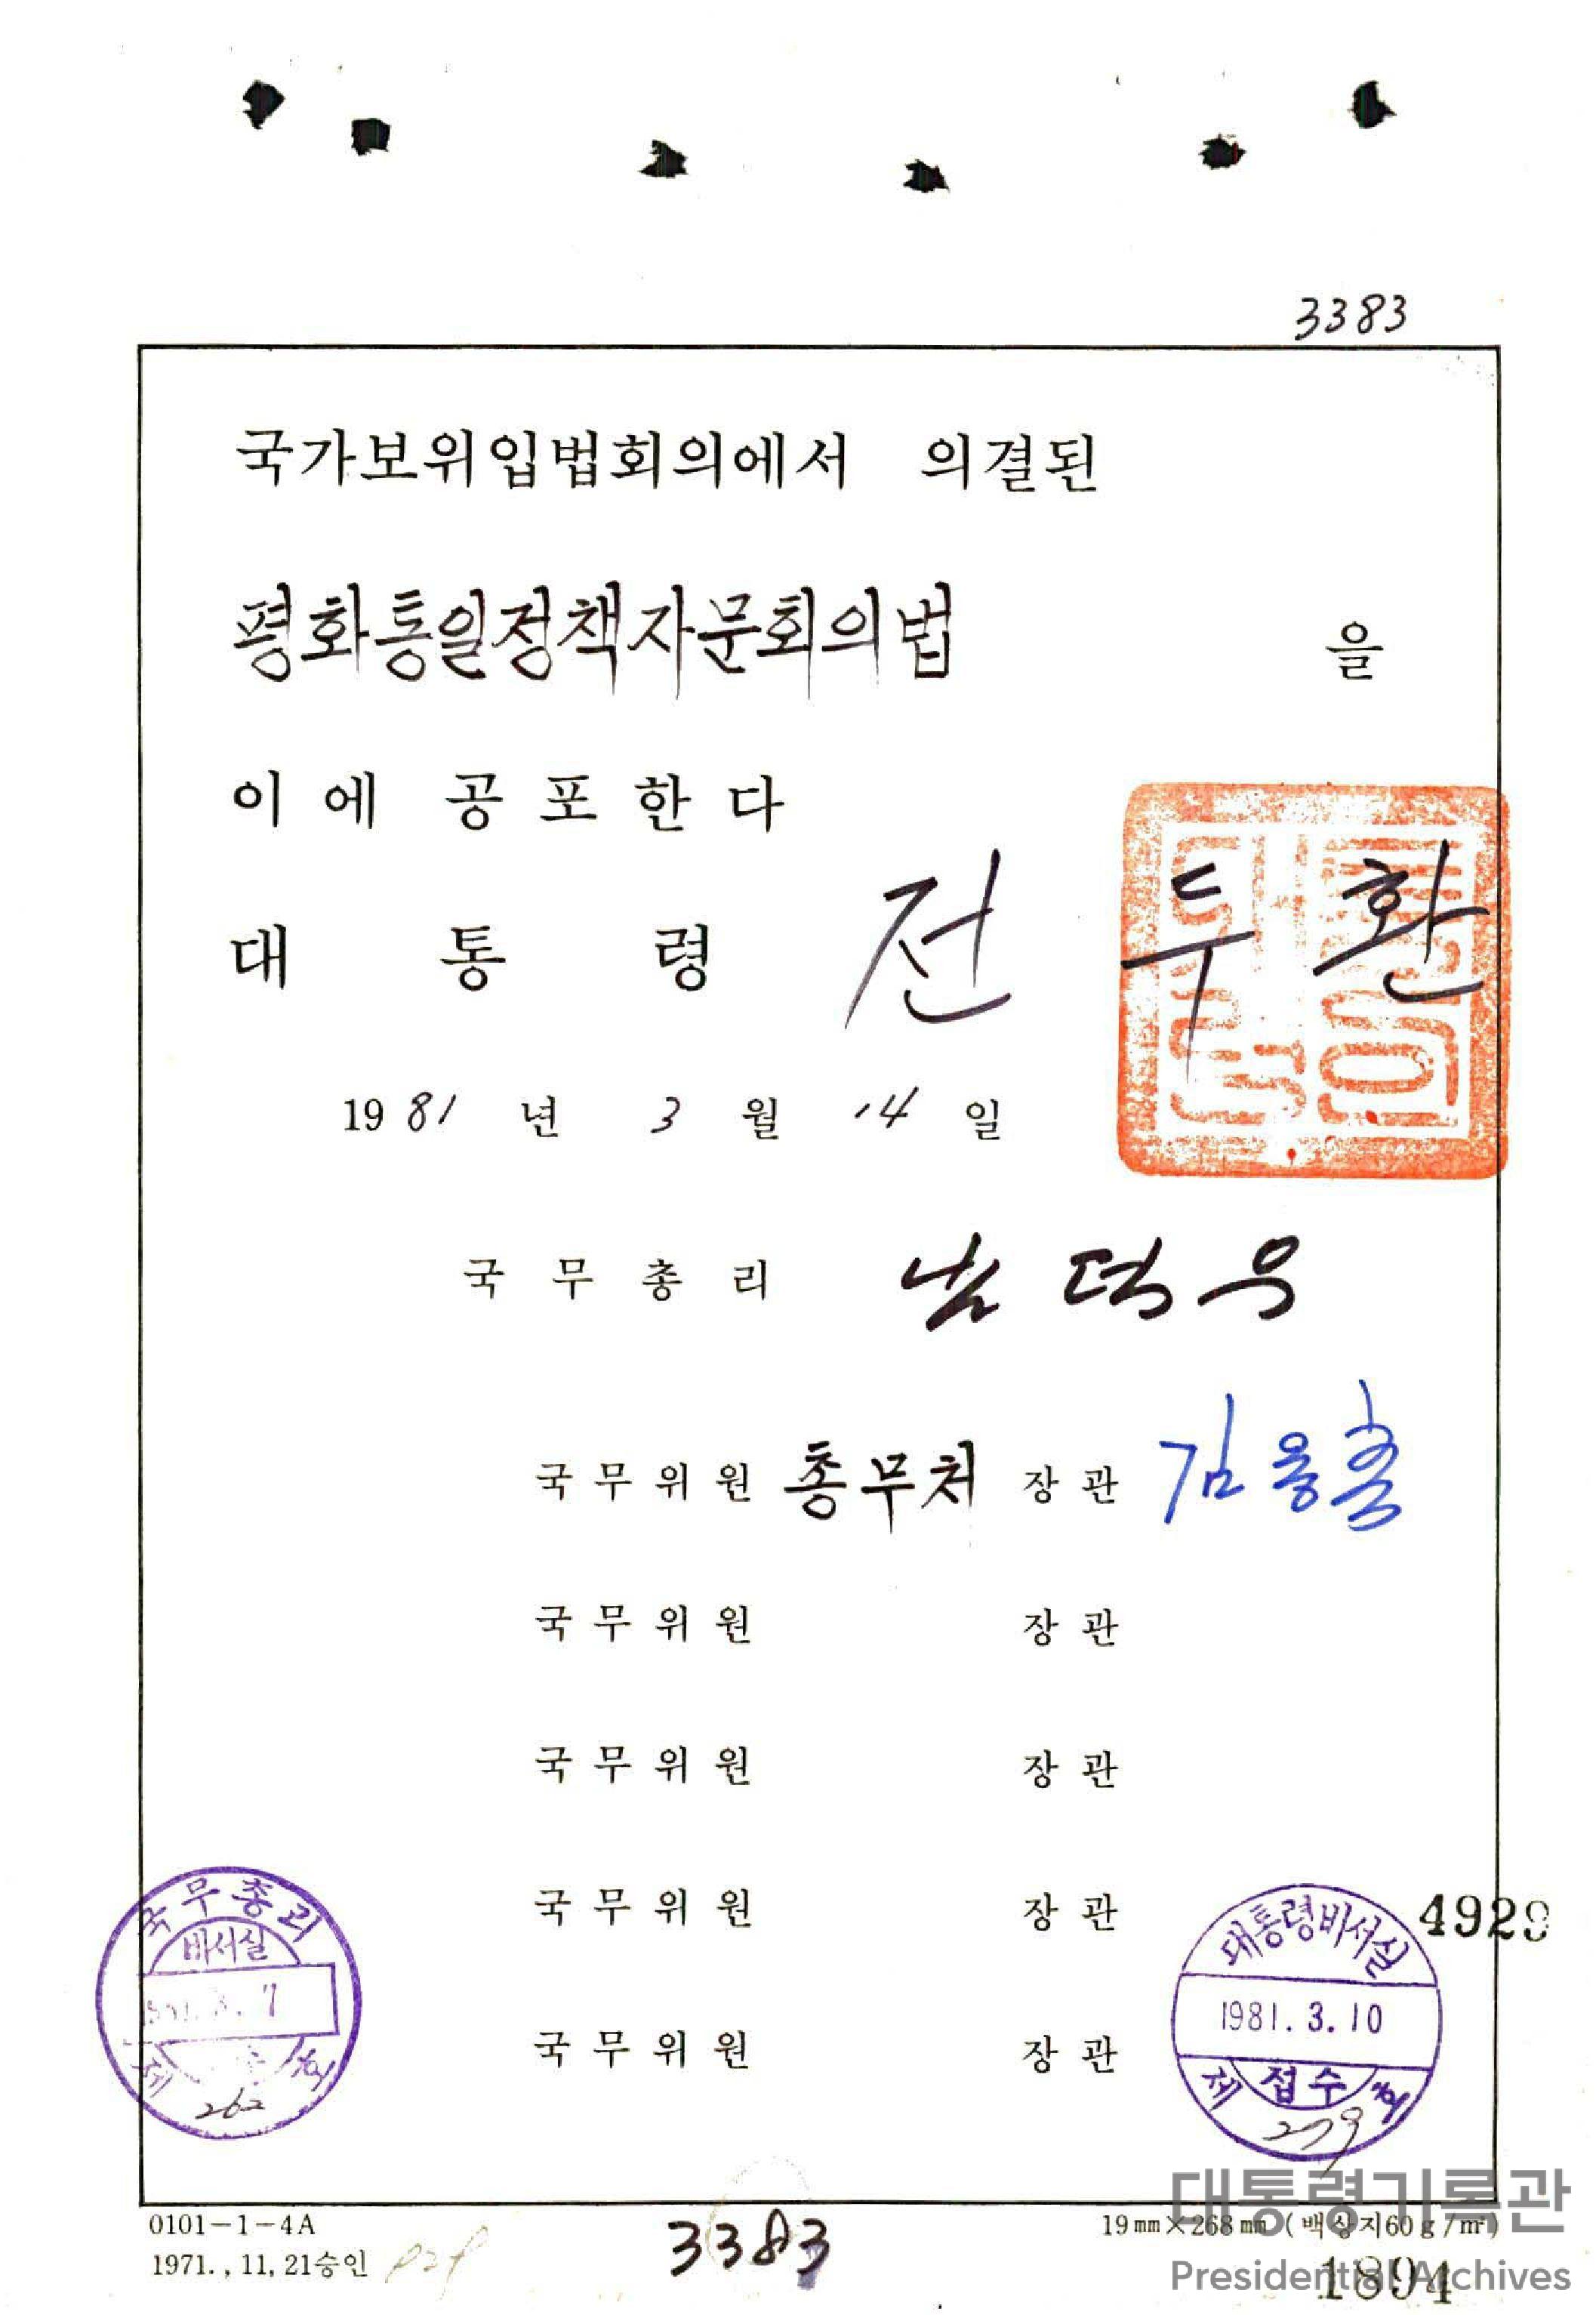 3383
국가보위입법회의에서 의결된
평화통일정책자문회의법 을
이에 공포한다
대통령 전두환
1981년 3월 14일
국무총리 남덕우
국무위원 총무처 장관 김용휴
국무위원 장관
국무위원 장관
국무위원 장관
국무위원 장관
4929
국무총리
비서실
3. 7
제 호
262
대통령비서실
1981. 3. 10
접수
제 호
279
0101-1-4A
1971., 11, 21승인
3383
19㎜×268㎜ (백상지60g/㎡)
대통령기록관
Presidential Archives
1894